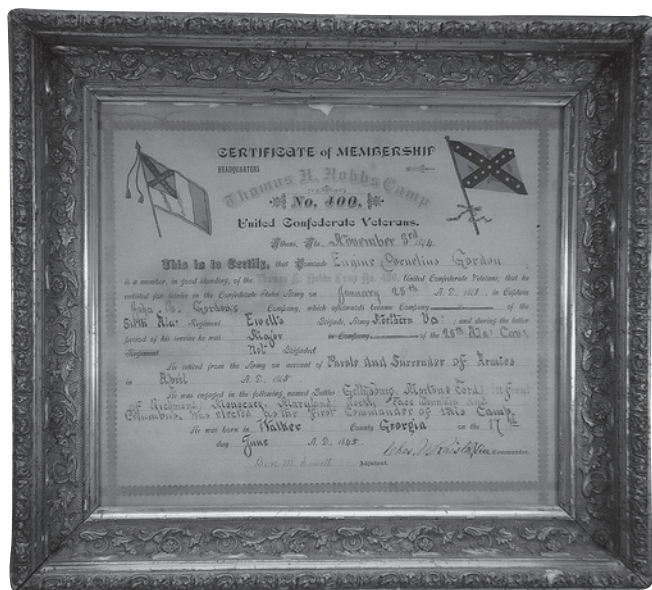 CERTIFICATE of MEMBERSHIP
HEADQUARTERS
Thomas H. Hobbs Camp
No. 400.
United Confederate Veterans.
Athens, Ala. November 3rd
This is to Certify, that Comrade Eugine Cornelius Gordon
is a member, in good standing, of the Thomas H. Hobbs Camp No. 400, United Confederate Veterans; that he
enlisted for service in the Confederate States Army on January 25th A. D., in Captain
John B. Gordon's Company, which afterwards became Company of the
Sixth Ala: Regiment Ewell's Brigade, Army Northern Va: and during the latter
period of his service he was Major in Company of the 25th Ala: Cav:
Regiment Not Brigaded
He retired from the Army on account of Parole and Surrender of Armies
in April A. D., 1865
He was engaged in the following named Battles: Gettysburg, Mortons Ford: in front
of Richmond, Monocacy, Maryland and
Columbus. Was elected as the First Commander of this Camp.
He was born in Walker County Georgia on the 17th
day June A. D., 1845
Commander.
Adjutant.